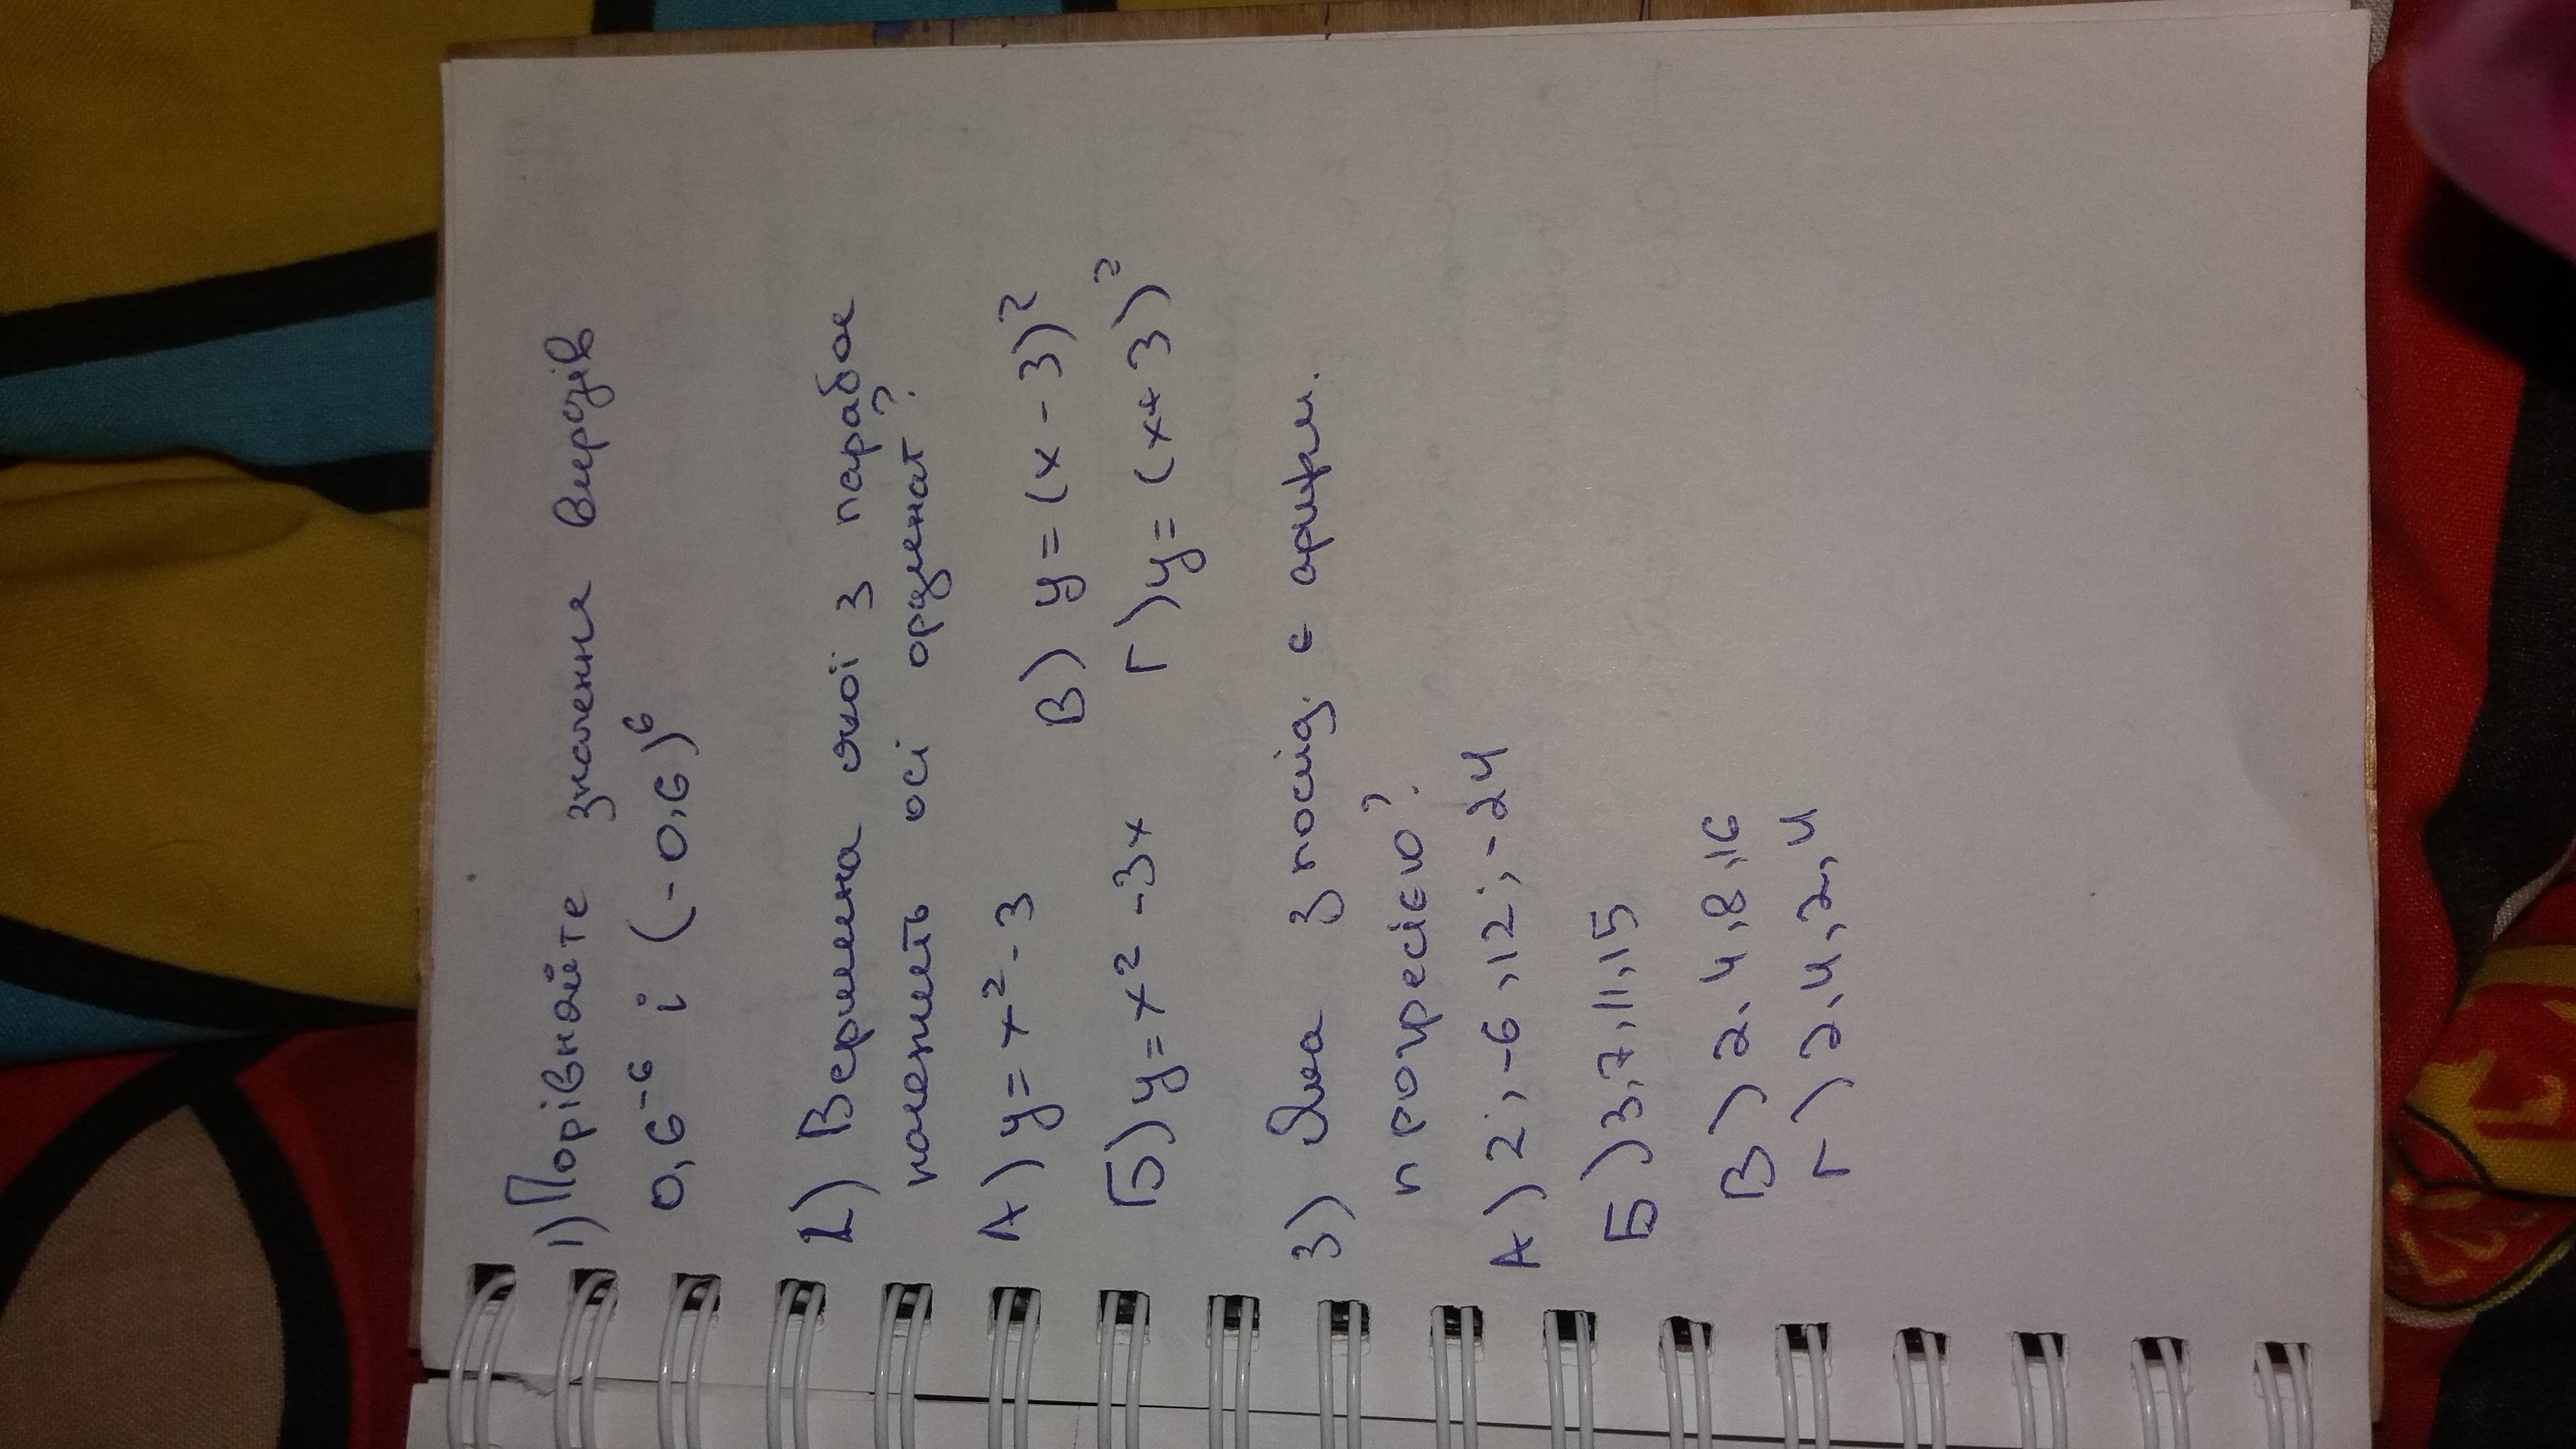 1) Порівнайте значення виразів
0,6⁻⁶ і (-0,6)⁶
2) Вершина якої з парабол
належить осі ординат?
А) y = x² - 3 В) y = (x - 3)²
Б) y = x² - 3x Г) y = (x + 3)²
3) Яка з послід. є арифм.
прогресією?
А) 2; -6, 12; -24
Б) 3, 7, 11, 15
В) 2, 4, 8, 16
Г) 2, 4, 2, 4